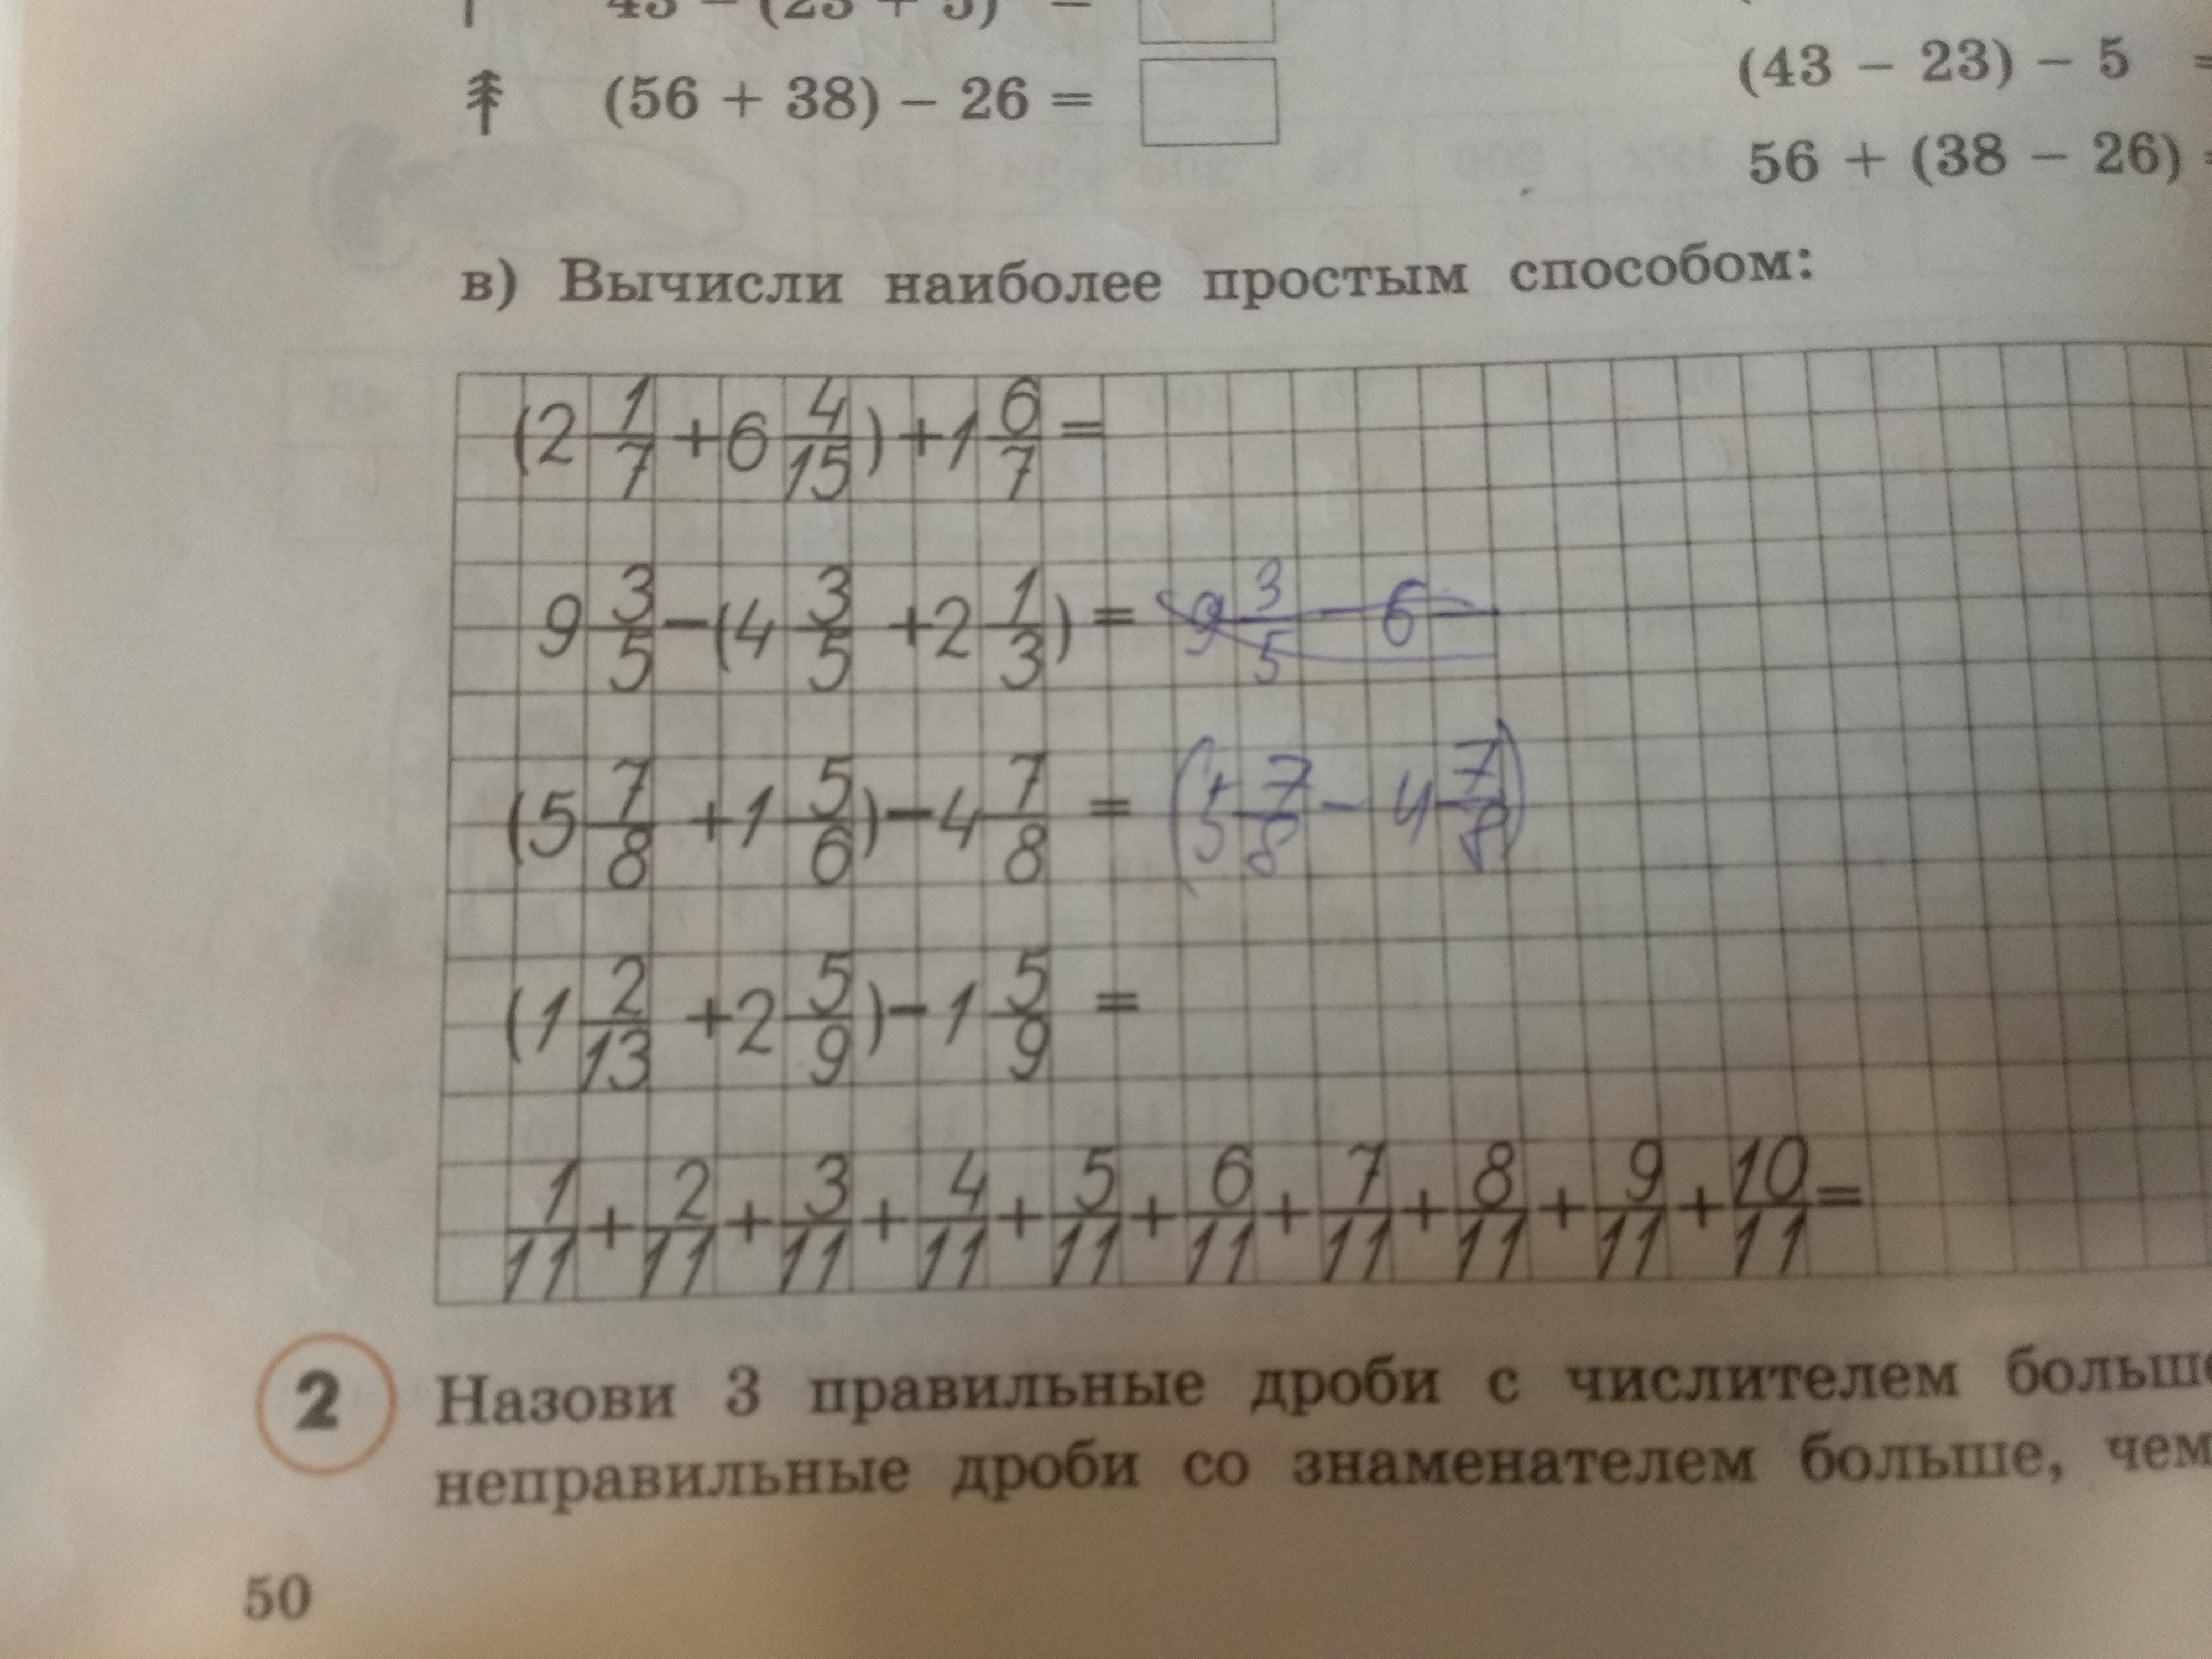 43 – (23 + 5) =
(56 + 38) – 26 =
(43 – 23) – 5 =
56 + (38 – 26) =
в) Вычисли наиболее простым способом:
(2 1/7 + 6 4/15) + 1 6/7 =
9 3/5 – (4 3/5 + 2 1/3) = 9 3/5 – 6
(5 7/8 + 1 5/6) – 4 7/8 = (5 7/8 – 4 7/8)
(1 2/13 + 2 5/9) – 1 5/9 =
1/11 + 2/11 + 3/11 + 4/11 + 5/11 + 6/11 + 7/11 + 8/11 + 9/11 + 10/11 =
2 Назови 3 правильные дроби с числителем больше
неправильные дроби со знаменателем больше, чем
50